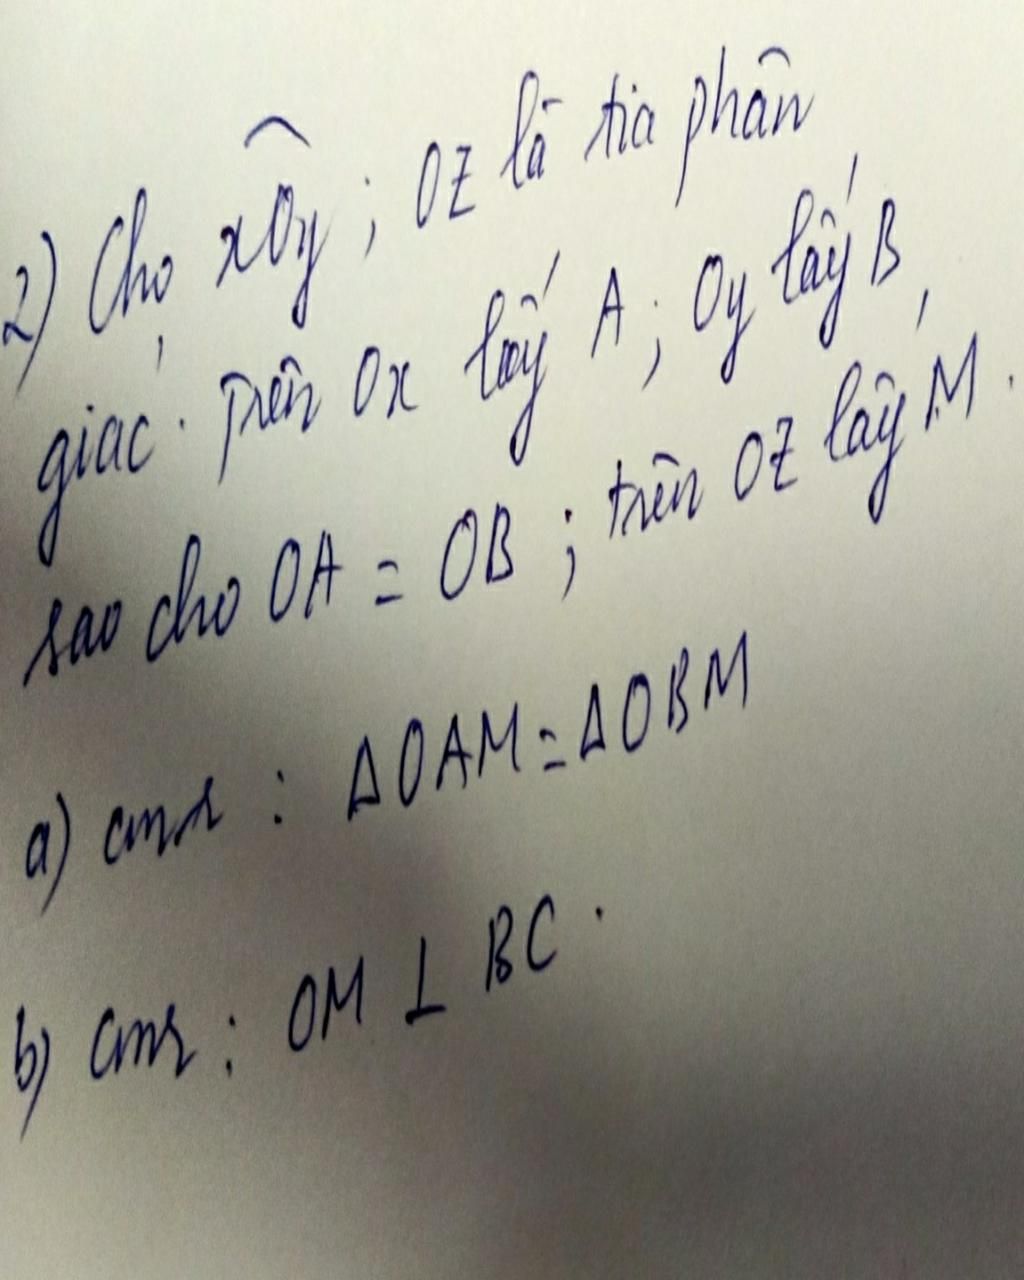 2) Cho xOy ; OZ là tia phân
giác. Trên Ox lấy A ; Oy lấy B
sao cho OA = OB ; trên OZ lấy M.
a) cmr : ΔOAM = ΔOBM
b) cmr : OM ⊥ BC.